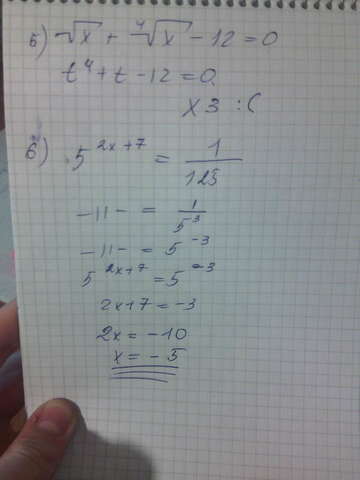 5) √x + ⁴√x - 12 = 0
t⁴ + t - 12 = 0
x3 :(
6) 5^{2x+7} = 1/125
-11- = 1/5³
-11- = 5^{-3}
5^{2x+7} = 5^{-3}
2x+7 = -3
2x = -10
x = -5